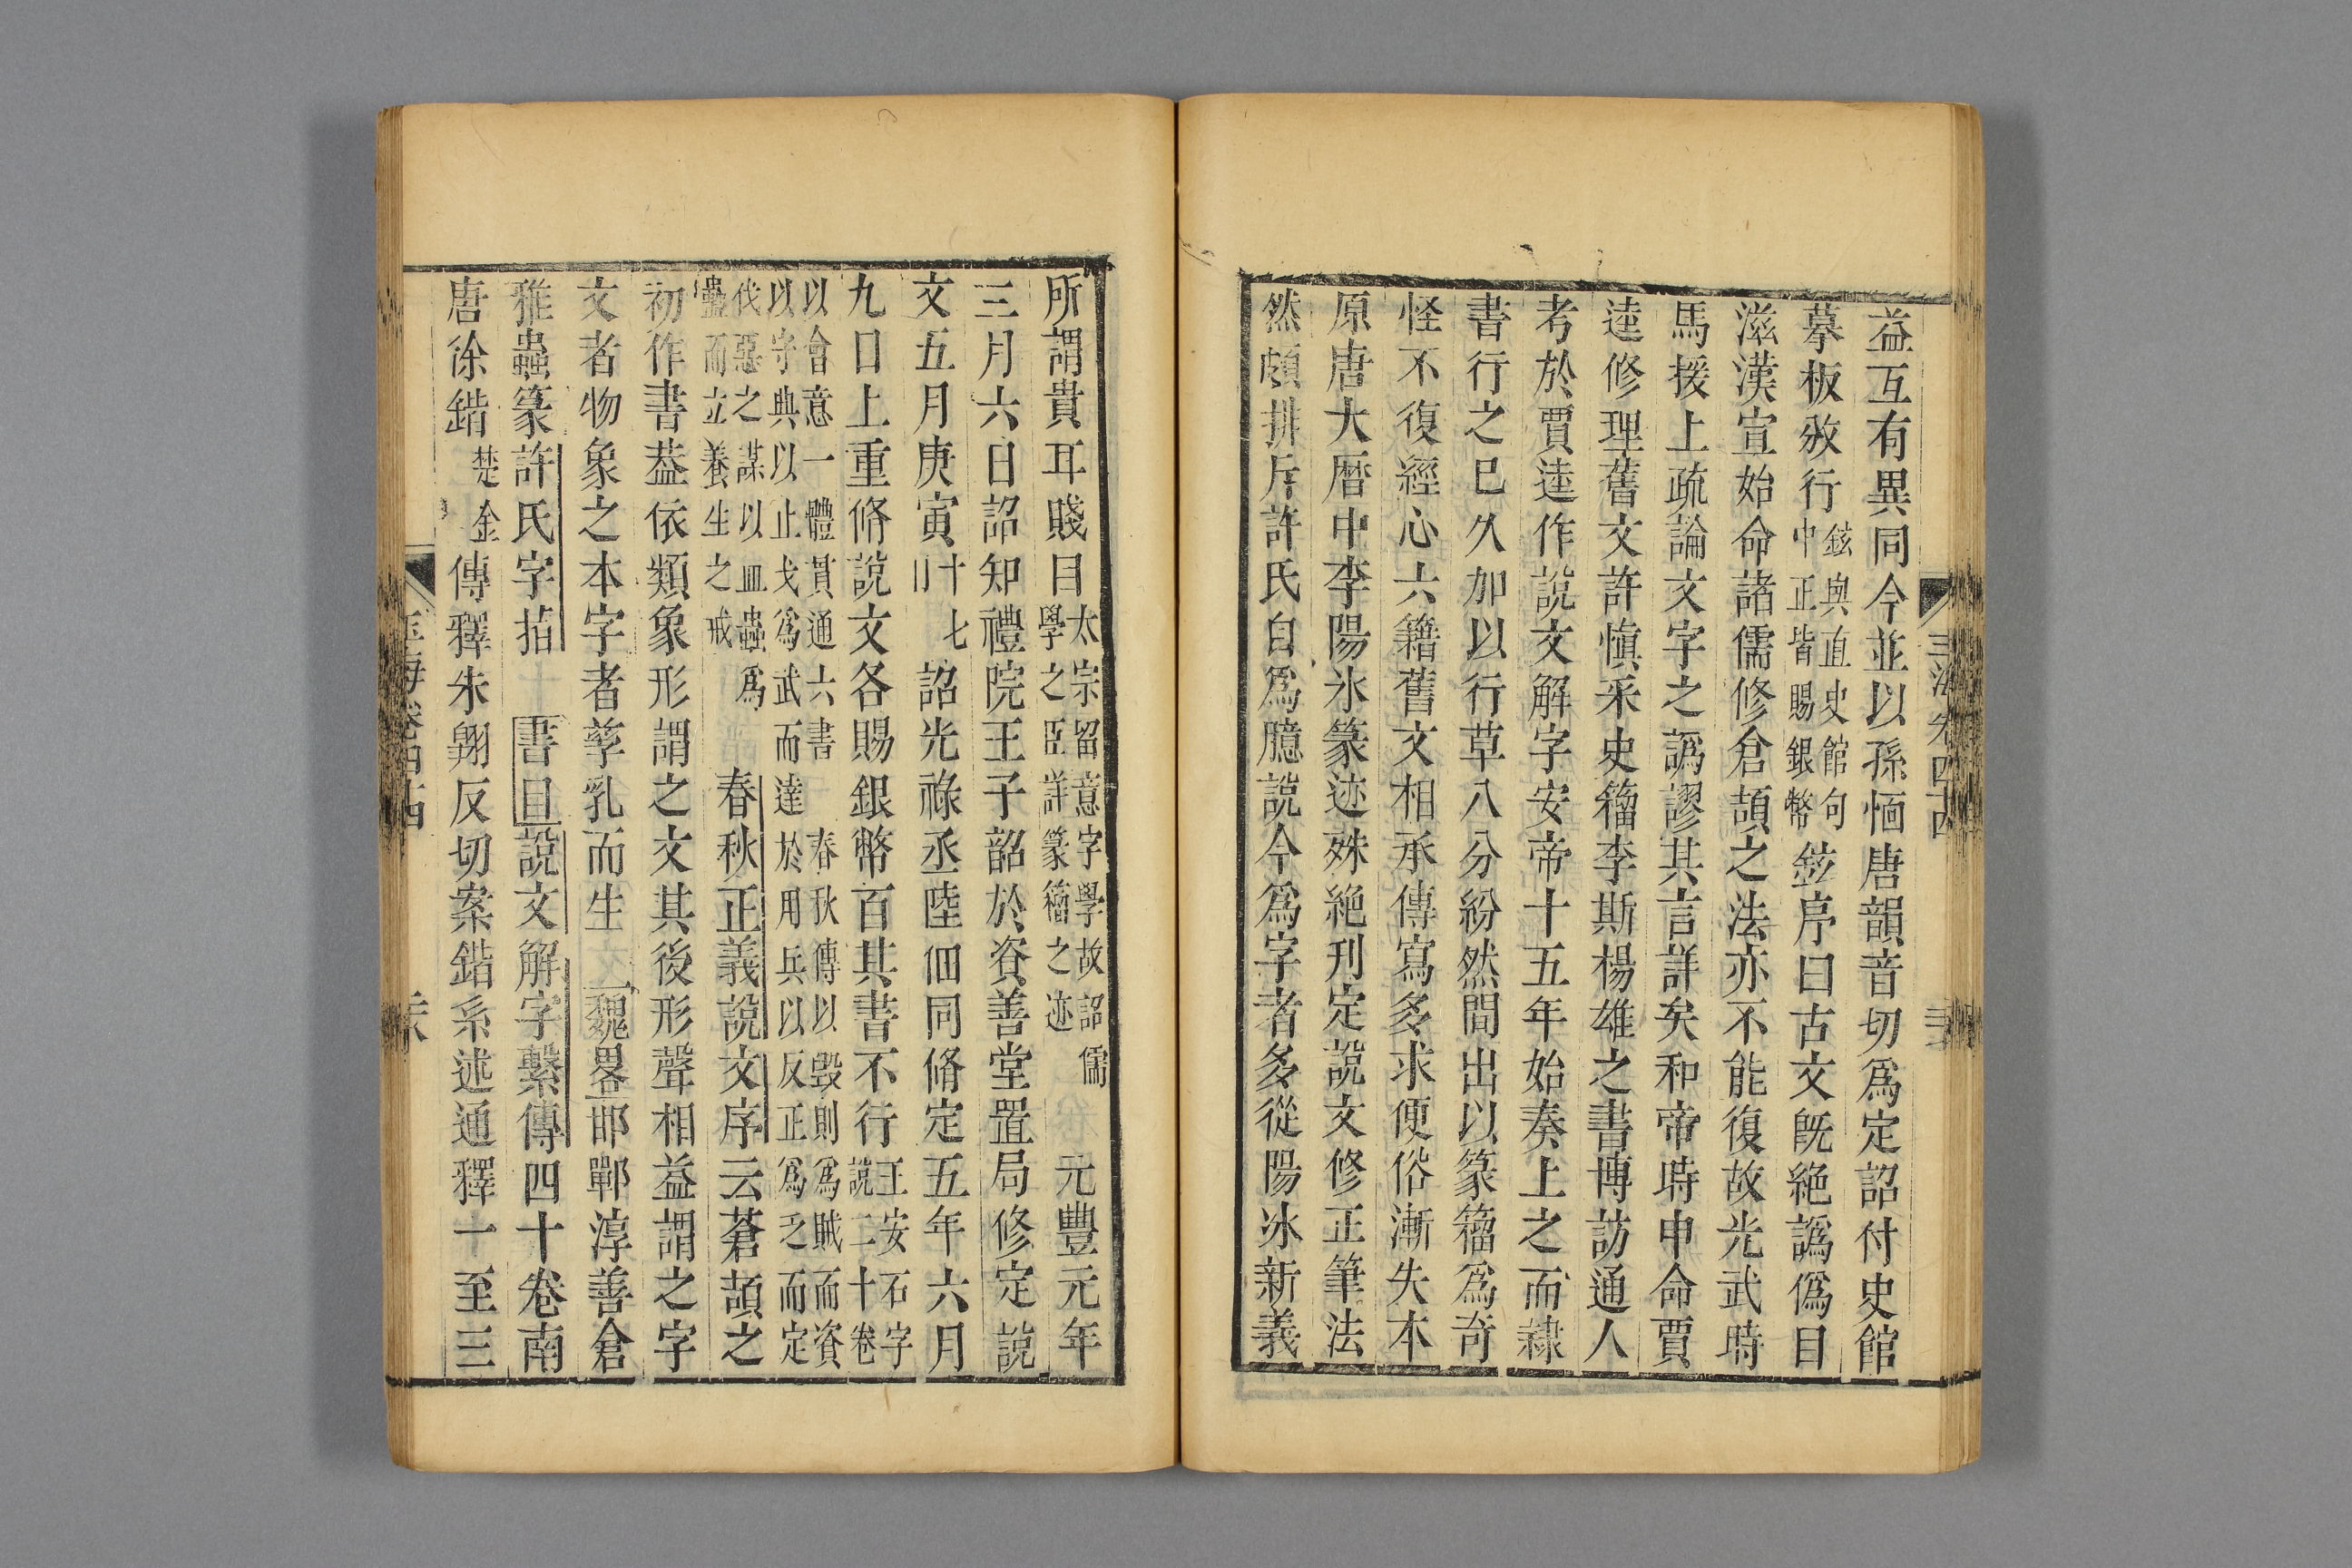 益互有異同今並以孫愐唐韻音切爲定詔付史館
摹板攽行鉉與直史館句中正皆賜銀幣鉉序曰古文旣絶譌僞目
滋漢宣始命諸儒修倉頡之法亦不能復故光武時
馬援上疏論文字之譌謬其言詳矣和帝時申命賈
逵修理舊文許愼采史籒李斯楊雄之書博訪通人
考於賈逵作說文解字安帝十五年始奏上之而隷
書行之巳久加以行草八分紛然間出以篆籒爲奇
怪不復經心六籍舊文相承傳寫多求便俗漸失本
原唐大曆中李陽氷篆迹殊絶刋定說文修正筆法
然頗排斥許氏自爲臆說今爲字者多從陽氷新義
所謂貴耳賤目太宗留意字學故詔儒學之臣詳篆籒之迹元豐元年
三月六日詔知禮院王子韶於資善堂置局修定說
文五月庚寅十七日詔光祿丞陸佃同脩定五年六月
九日上重脩說文各賜銀幣百其書不行王安石字說二十卷
以會意一體貫通六書春秋傳以毀則爲賊而資以守典以止戈爲武而達於用兵以反正爲乏而定
伐惡之謀以皿蟲爲蠱而立養生之戒春秋正義說文序云蒼頡之
初作書葢依類象形謂之文其後形聲相益謂之字
文者物象之本字者孳乳而生魏畧邯鄲淳善倉
雅蟲篆許氏字指書目說文解字繫傳四十卷南
唐徐鍇楚金傳釋朱翶反切案鍇系述通釋一至三
玉海卷四十四